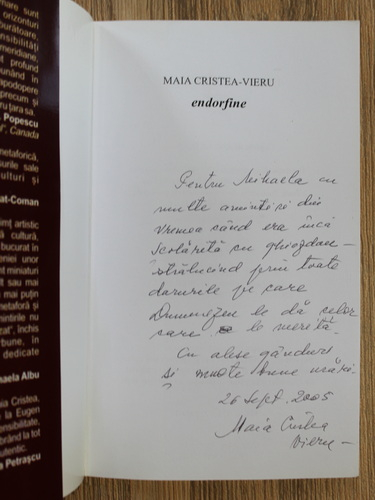 mare sunt
orizonturi
burătoare,
nsibilități
meridiane,
t profund
unând în
apodopere
precum și
ru țara sa.
Popescu
", Canada
netaforică,
urile sale
ulturi și
at-Coman
imț artistic
ă cultură,
bucurat în
eniei unor
nt miniaturi
lt sau mai
mai puțin
netaforă și
mintirile nu
zat", închis
bune, în
dedicate
haela Albu
ia Cristea,
e la Eugen
ensibilitate,
brând la tot
utentic.
a Petrașcu
MAIA CRISTEA-VIERU
endorfine
Pentru Mihaela cu
multe amintiri din
vremea când era încă
școlăriță cu ghiozdan –
strălucind prin toate
darurile pe care
Dumnezeu le dă celor
care le merită.
Cu alese gânduri
și multe bune urări.
26 Sept. 2005
Maia Cristea
Vieru